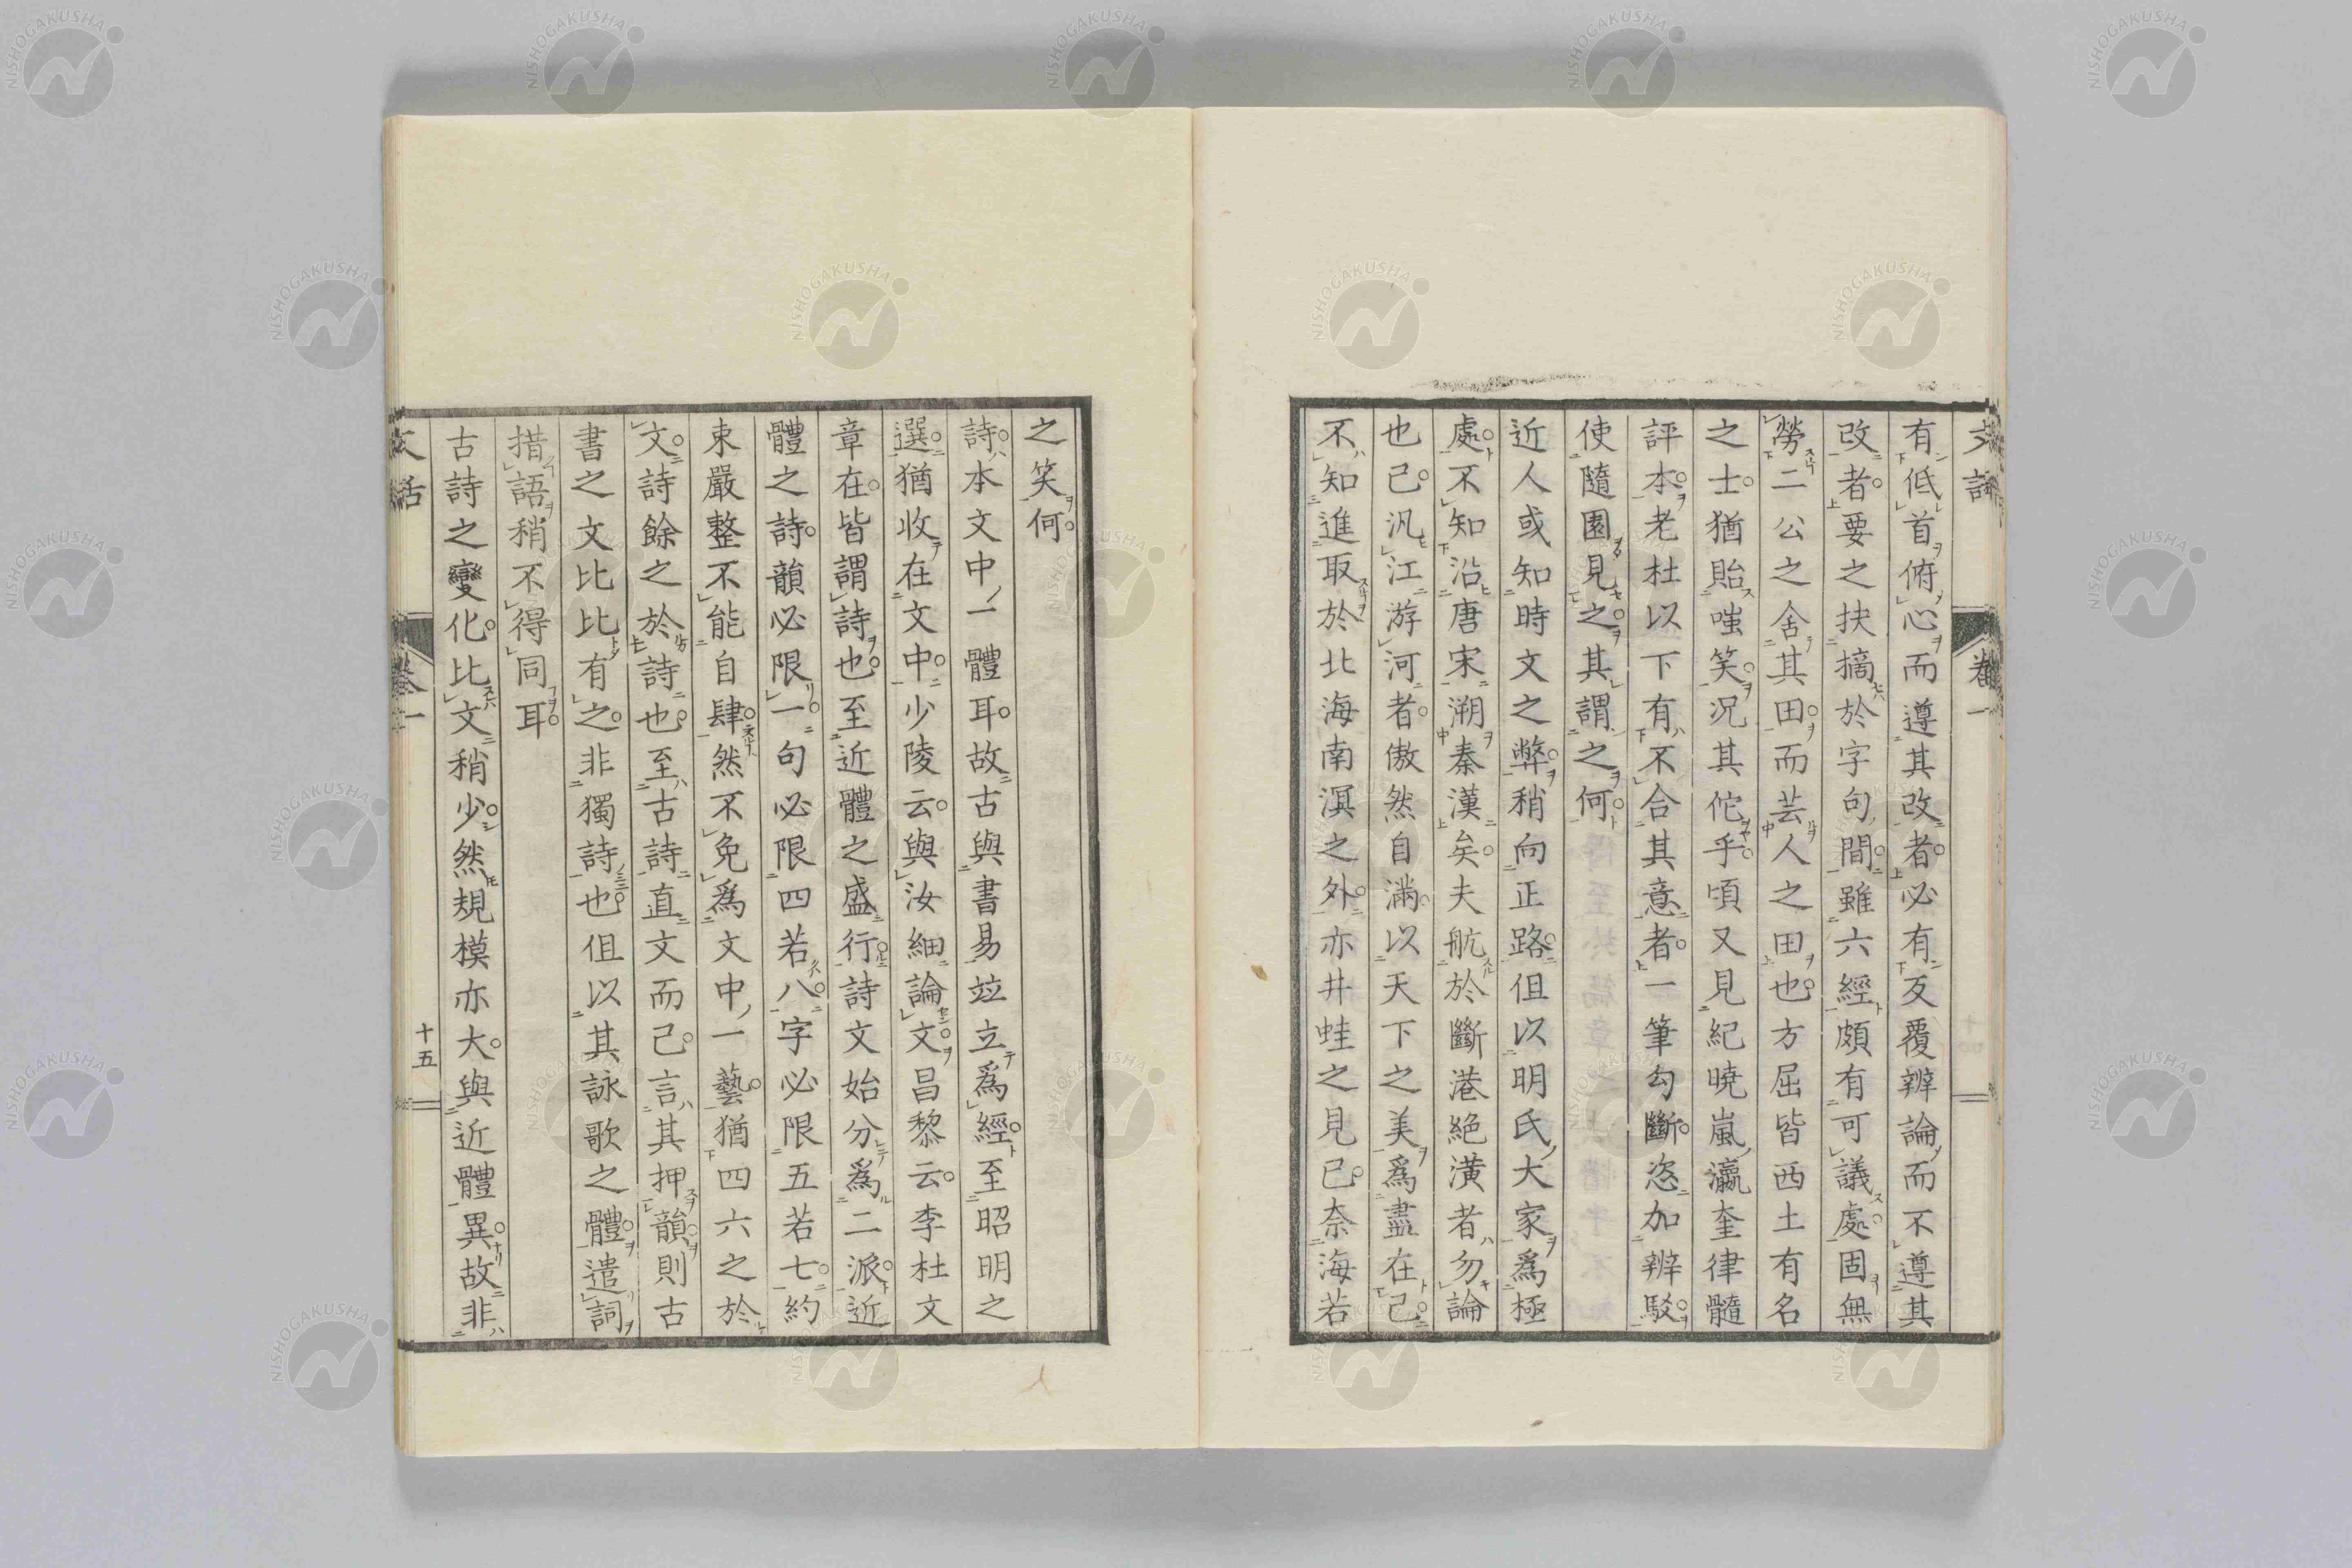 有低首俯心而遵其改者。必有反覆辨論而不遵其
改者。要之抉摘於字句間。雖六經頗有可議處。固無
勞二公之舍其田。而芸人之田也。方屈皆西土有名
之士。猶貽嗤笑。況其佗乎。頃又見紀曉嵐瀛奎律髓
評本。老杜以下有不合其意者。一筆勾斷。恣加辨駁。
使隨園見之。其謂之何。
近人或知時文之弊。稍向正路。但以明氏大家爲極
處。不知沿唐宋溯秦漢矣。夫航於斷港絕潢者。勿論
也已。汎江游河者。傲然自滿。以天下之美爲盡在己。
不知進取於北海南溟之外。亦井蛙之見已。奈海若
之笑何。
詩本文中一體耳。故古與書易竝立爲經。至昭明之
選。猶收在文中。少陵云。與汝細論文。昌黎云。李杜文
章在。皆謂詩也。至近體之盛行。詩文始分爲二派。近
體之詩。韻必限一。句必限四若八。字必限五若七。約
束嚴整。不能自肆。然不免爲文中一藝。猶四六之於
文。詩餘之於詩也。至古詩直文而已。言其押韻。則古
書之文比比有之。非獨詩也。但以其詠歌之體。遣詞
措語稍不得同耳。
古詩之變化。比文稍少。然規模亦大。與近體異。故非
文話
卷一
十五
NISHOGAKUSHA